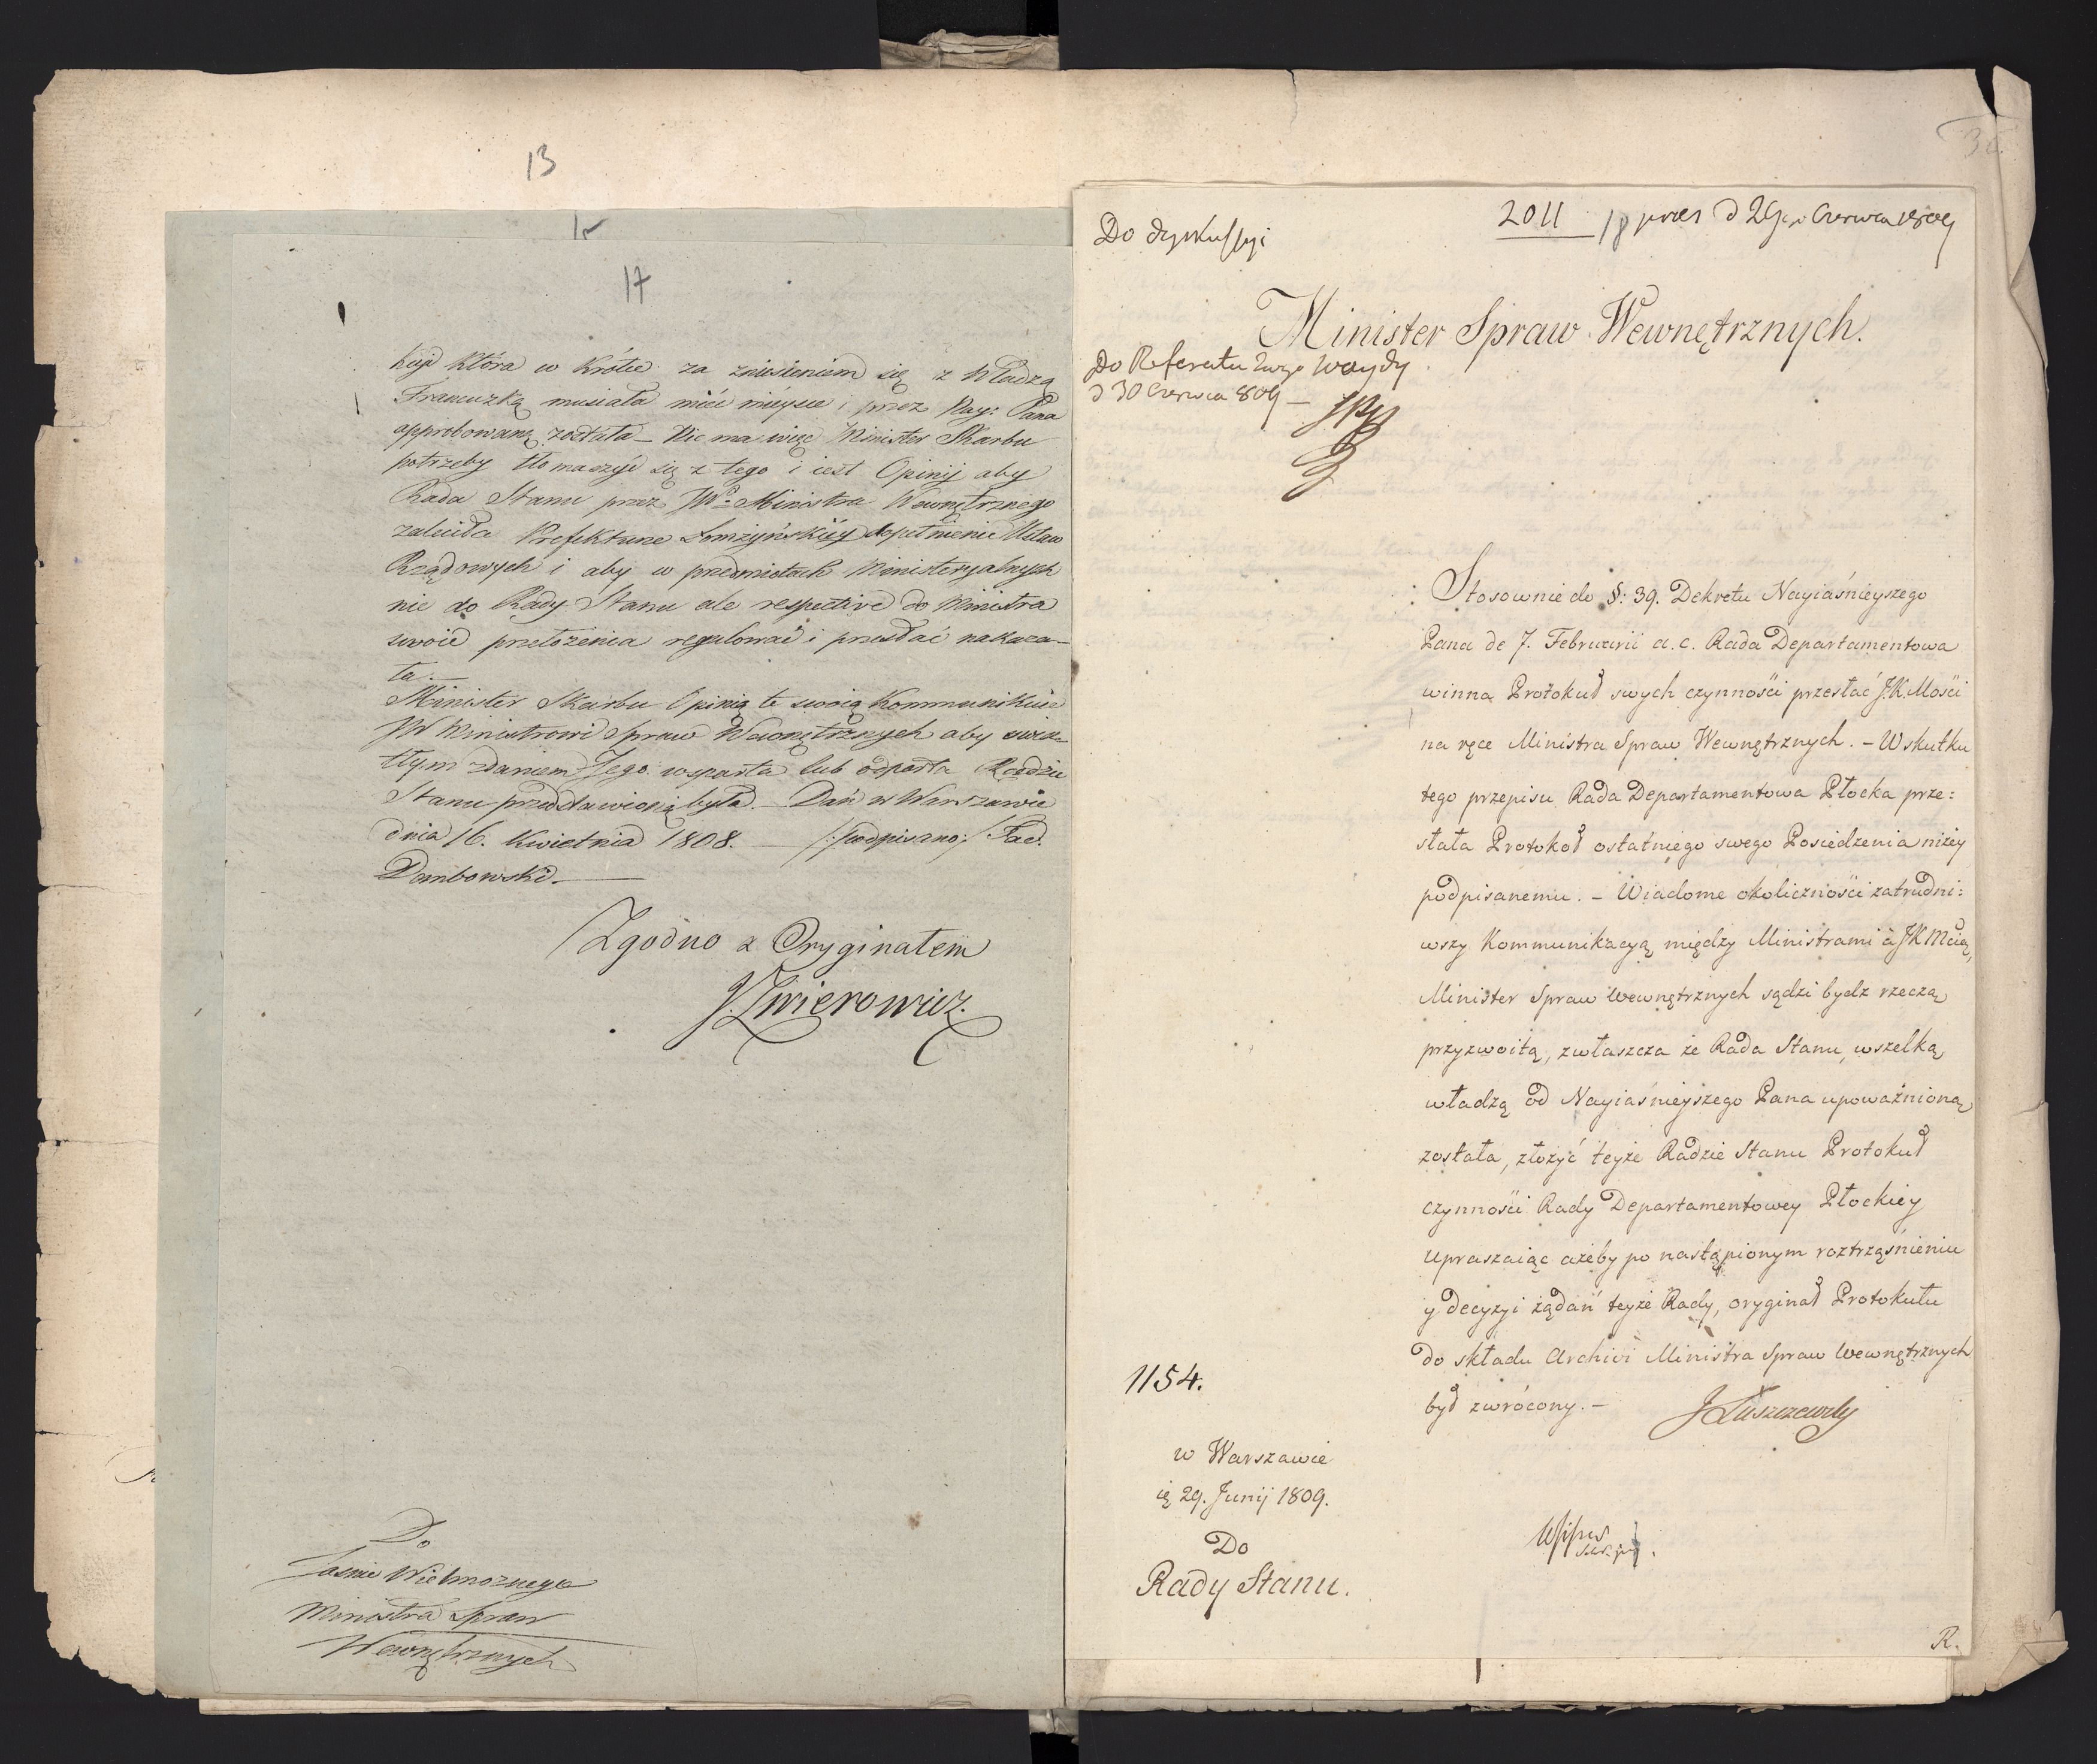 13
17
kcyi która w krótce za zniesieniem się z Władzą
Francuzką musiała mieć mieysce i przez Nay: Pana
approbowaną została – Nie ma więc Minister Skarbu
potrzeby tłomaczyć się z tego i iest Opinij aby
Rada Stanu przez JW. Ministra Wewnętrznego
zaleciła Prefekturze Łomżyńskiéy dopełnienie Ustaw
Rządowych i aby w przedmiotach Ministeryalnych
nie do Rady Stanu ale respective do Ministra
swoie przełożenia regulować i przesłać nakaza–
ła.–
Minister Skarbu Opinią tę swoią kommunikuie
JW Ministrowi Spraw Wewnętrznych aby świa–
tłym zdaniem Jego wsparta lub odparta Radzie
Stanu przedstawioną była. – Dań w Warszawie
dnia 16. Kwietnia 1808. – /:podpisano:/
Dembowski –
Zgodno z Oryginałem
J. Zwierowicz.
Do
Jaśnie Wielmożnego
Ministra Spraw
Wewnętrznych
2011 18 praes d 29go Czerwca 1809
Do dyskussyi
Minister Spraw Wewnętrznych.
Do Referatu Jwgo Woydy
d 30 Czerwca 809 –
Stosownie do §: 39. Dekretu Nayiaśnieyszego
Pana de 7. Februarii a. c. Rada Departamentowa
winna Protokuł swych czynności przesłać J.K.Mości
na ręce Ministra Spraw Wewnętrznych. – W skutku
tego przepisu Rada Departamentowa Płocka prze:
słała Protokoł ostatniego swego Posiedzenia niżey
podpisanemu. – Wiadome okoliczności zatrudni:
wszy Kommunikacyą między Ministrami a JKMcią,
Minister Spraw Wewnętrznych sądzi bydz rzeczą
przyzwoitą, zwłaszcza że Rada Stanu, wszelką
władzą od Nayiaśnieyszego Pana upoważnioną
została, złożyć teyże Radzie Stanu Protokuł
czynności Rady Departamentowey Płockiey
upraszaiąc ażeby po nastąpionym roztrząśnieniu
y decyzyi żądań teyże Rady, oryginał Protokułu
do składu Archivi Ministra Spraw Wewnętrznych
był zwrócony. –
J Łuszczewsky
1154.
w Warszawie
29. Junij 1809.
Do
Rady Stanu.
R.